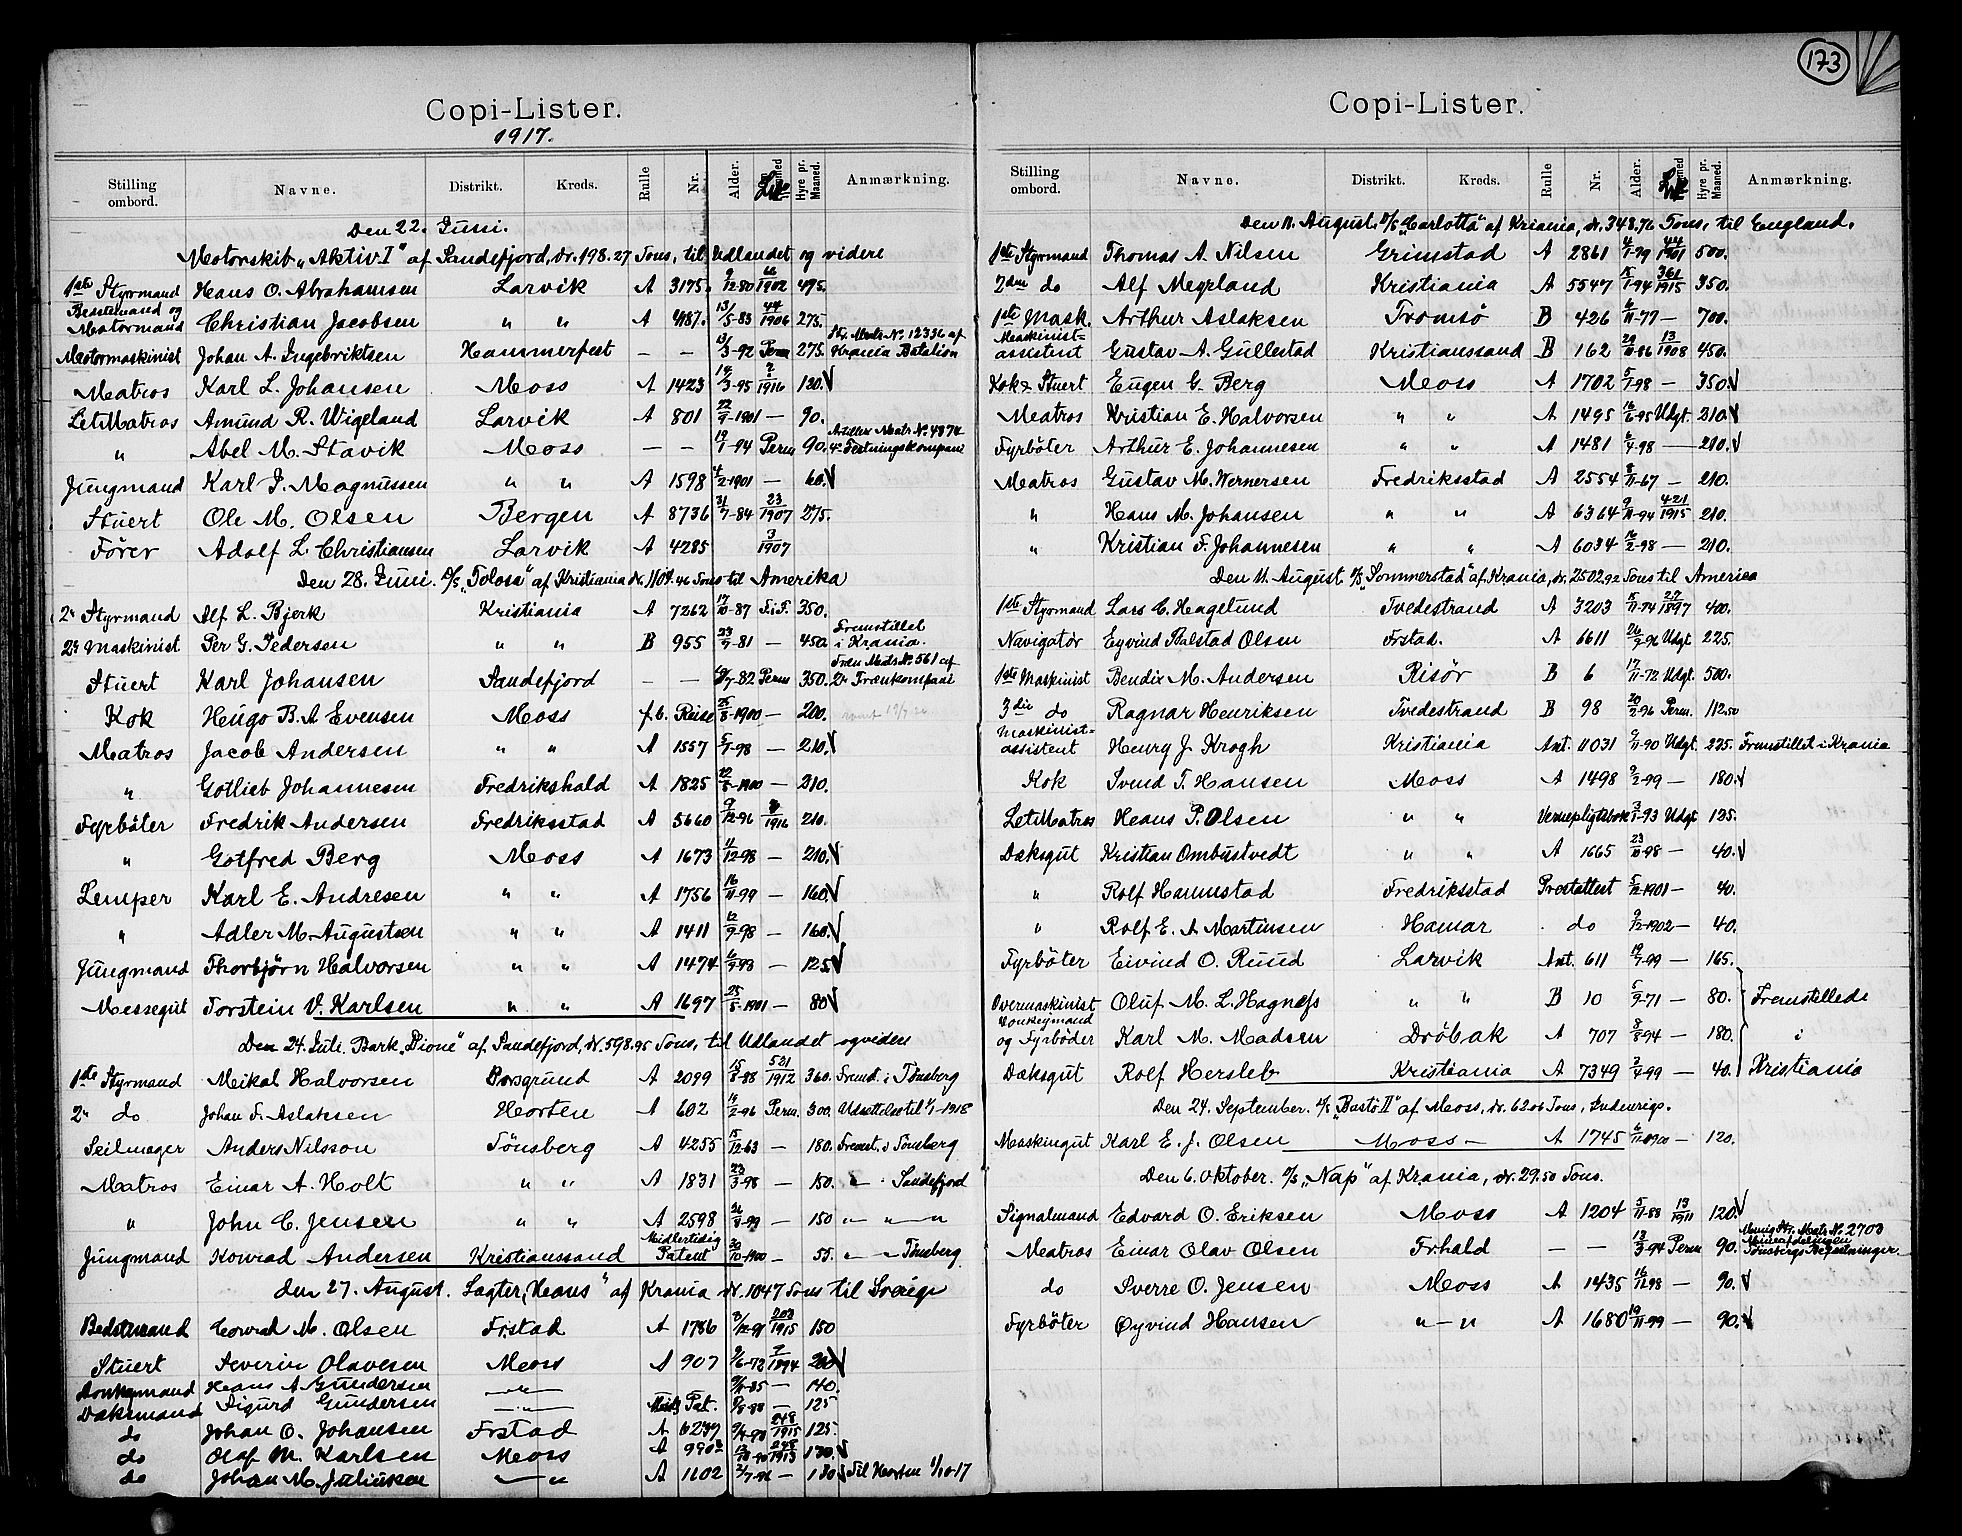 173
Copi-Lister.
1917.
Stilling ombord. Navne. Distrikt. Kreds. Rulle Nr. Alder. Hyre pr. Maaned. Anmærkning.
Den 22. Juni.
Motorskib "Aktiv I" af Sandefjord, dr. 198.27 Tons, til Udlandet og videre
1ste Styrmand Hans O. Abrahamsen Larvik A 3175. 9/12-80 1902 495.
Bedstemand og Motormand Christian Jacobsen " " A 4187. 13/5-83 44/1906 275.
Motormaskinist Johan A. Ingebriktsen Hammerfest — — 13/3-92 Perm 275. Str. Mnds No. 12336 af Krania Batalion
Matros Karl L. Johansen Moss A 1423 19/3-95 2/1916 120. √
LetMatros Amund R. Wigeland Larvik A 801 22/9-1901 — 90.
" Abel M. Stavik Moss — — 19/1-94 Perm 90. Artilleri Mnds No. 4874 4de Festningskompani
Jungmand Karl J. Magnussen " " A 1598 4/2-1901 — 60. √
Stuert Ole M. Olsen Bergen A 8736 31/7-84 23/1907 275.
Fører Adolf L. Christiansen Larvik A 4285 3/1907
Den 28. Juni. D/S "Tolosa" af Kristiania dr. 1104.46 Tons til Amerika
2n Styrmand Alf L. Bjerk Kristiania A 7262 17/10-87 F.i.F. 350.
2n Maskinist Per G. Pedersen " " B 955 23/9-81 — 450. Fremstillet i Krania.
Stuert Karl Johansen Sandefjord — — 7-82 Perm 350. Træn Mnds No. 561 af 2n Trænkompani
Kok Hugo B. A Evensen Moss f.b. Reise 25/8-1900 — 200.
Matros Jacob Andersen " " A 1557 5/7-98 — 210. √
" Gotlieb Johannesen Fredrikshald A 1825 22/5-1900 — 210.
Fyrbøter Fredrik Andersen Fredriksstad A 5660 9/12-96 1916 210.
" Gotfred Berg Moss A 1673 11/12-98 — 210. √
Lemper Karl E. Andresen " " A 1756 16/11-99 — 160. √
" Adler M. Augustsen " " A 1411 12/9-98 — 160. √
Jungmand Thorbjørn Halvorsen " " A 1474 6/9-98 — 125 √
Messegut Torstein V. Karlsen " " A 1697 25/5-1901 — 80 √
Den 24. Juli. Bark "Dione" af Sandefjord, dr. 598.95 Tons, til Udlandet og viden
1ste Styrmand Meikal Halvorsen Porsgrund A 2099 15/8-88 521/1912 360. Fremst. i Tønsberg
2n do Johan F. Aslaksen Horten A 602 14/2-96 Perm. 300. Udsættelse til 1/1-1918
Seilmager Anders Nilsson Tönsberg A 4255 15/12-63 — 180. Fremst. i Tönsberg
Matros Einar A. Holt " " A 1831 23/3-98 — 150. " - " Sandefjord
" John C. Jensen " " A 2598 26/8-99 — 150 " — " — "
Jungmand Konrad Andersen Kristianssand Midlertidig Patent 30/10-1900 — 55. " — " Tönsberg
den 27. August. Lægter "Hans" af Krania dr. 1047 Tons til Sverige
Bedstmand Conrad M. Olsen Frstad A 1786 8/12-91 203/1915 150
Stuert Severin Olavesen Moss A 907 9/6-72 7/1894 200 √
Donkeymand Hans A Gundersen — " — 85 — 140.
Dæksmand Sigurd Gundersen — " — Midl. Pat. 8-88 — 125
do Johan O. Johansen Frstad A 6237 248/1915 125.
do Olaf M. Karlsen Moss A 9902 13/10-90 1913 130. √
do Johan M. Juliussen — " A 1102 2/7-96 — 130 √ Til Horten 1/10-17
Copi-Lister.
Stilling ombord. Navne. Distrikt. Kreds. Rulle Nr. Alder. Hyre pr. Maaned. Anmærkning.
Den 11. August. D/S "Carlotta" af Krania, dr. 348.76 Tons, til England.
1ste Styrmand Thomas A. Nilsen Grimstad A 2861 4/1-79 44/1901 500.
2den do Alf Meyeland Kristiania A 5547 15/1-94 361/1915 350.
1ste Mask. Arthur Aslaksen Tromsö B 426 6/11-77 — 700.
Maskinist-assistent Gustav A. Gullestad Kristianssand B 162 29/10-86 13/1908 450.
Kok & Stuert Eugen G. Berg Moss A 1702 5/7-98 — 350 √
Matros Kristian E. Halvorsen " " A 1495 16/6-95 Udgt. 210. √
Fyrböter Arthur E. Johannesen " " A 1481 6/9-98 — 210. √
Matros Gustav M. Wernersen Fredriksstad A 2554 8/11-67 — 210.
" Hans M. Johansen " " A 6364 9/11-94 421/1915 210.
" Kristian F. Johannesen " " A 6034 16/2-98 — 210.
Den 11. August D/S "Sommerstad" af Krania, dr. 2502.92 Tons til America
1ste Styrmand Lars C. Hagelund Tvedestrand A 3203 15/11-74 27/1897 400.
Navigatør Eyvind Balstad Olsen Frstad. A 6611 26/9-96 Udgt. 225.
1ste Maskinist Bendix M. Andersen Risör B 6 17/11-72 Udgt. 500.
3die do Ragnar Henriksen Tvedestrand B 98 20/2-96 Perm. 112.50
Maskinist-assistent Henry J. Krogh Kristiania Ant. 11031 9/11-90 Udgt. 225. Fremstillet i Krania
Kok Svend T. Hansen Moss A 1498 9/2-99 — 180. √
LetMatros Hans P. Olsen " " Vernepligtsbok 3/1-93 Udgt 135.
Dæksgut Kristian Ombustvedt " " A 1665 23/10-98 — 40. √
" Rolf Hannestad Fredriksstad Prestattest 5/12-1901 — 40.
" Rolf E. A. Martinsen Hamar do 9/12-1902 — 40.
Fyrböter Eivind O. Ruud Larvik Ant. 611 19/7-99 — 165.
Overmaskinist Oluf M. L. Hagnæss " " B 10 5/9-71 — 80. Fremstillede
Donkeymand og Fyrböder Karl M. Madsen Dröbak A 707 8/8-94 — 180. i
Dæksgut Rolf Hersleb Kristiania A 7349 2/4-99 — 40. Kristiania
Den 24. September. D/S "Bastö II" af Moss, dr. 62.06 Tons, Indenrigs.
Maskingut Karl E. J. Olsen Moss — A 1745 6/11-1900 — 120.
Den 6. Oktober. D/S "Nap" af Krania, dr. 29.50 Tons.
Signalmand Edvard O. Eriksen Moss A 1204 5/11-88 13/1911 120. √
Matros Einar Olav Olsen Frhald — — 13/3-94 Perm 90. Menig Str. Mnds No. 2703 Mineafdelingen Tönsbergs Befæstninger
do Sverre O. Jensen Moss A 1435 16/12-98 — 90. √
Fyrböter Øyvind Hansen " — " A 1680 19/11-99 — 90. √